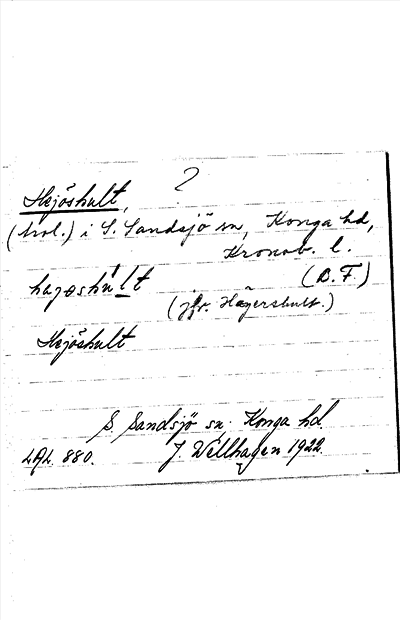 2
Hejöshult,
(kol.) i S. Sandsjö sn, Konga hd,
Kronob. l.
hajøshúlt (B.F.)
(jfr. Hägershult.)
Hejöshult
S Sandsjö sn. Konga hd.
LAL 880. J Wellhagen 1922.